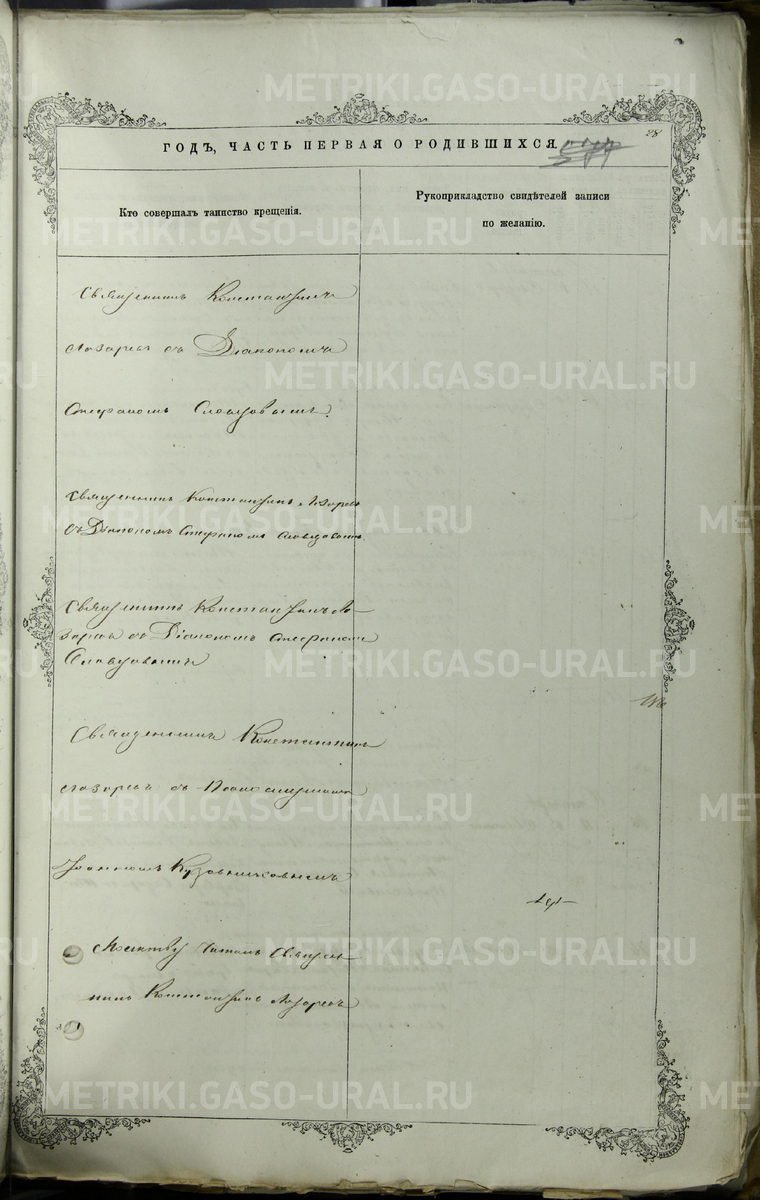 METRIKI.GASO-URAL.RU
28
ГОДЪ, ЧАСТЬ ПЕРВАЯ О РОДИВШИХСЯ.
Кто совершалъ таинство крещенія.
Рукоприкладство свидѣтелей записи
по желанію.
Священникъ Константинъ
Лазаревъ съ Діакономъ
Стефаномъ Словцовымъ
Священникъ Константинъ Лазаревъ
съ Діакономъ Стефаномъ Словцовымъ
Священникъ Константинъ Ла-
заревъ съ Діакономъ Стефаномъ
Словцовымъ
Священникъ Константинъ
Лазаревъ съ
Іоанномъ
Молитву читалъ Священ-
никъ Константинъ Лазаревъ